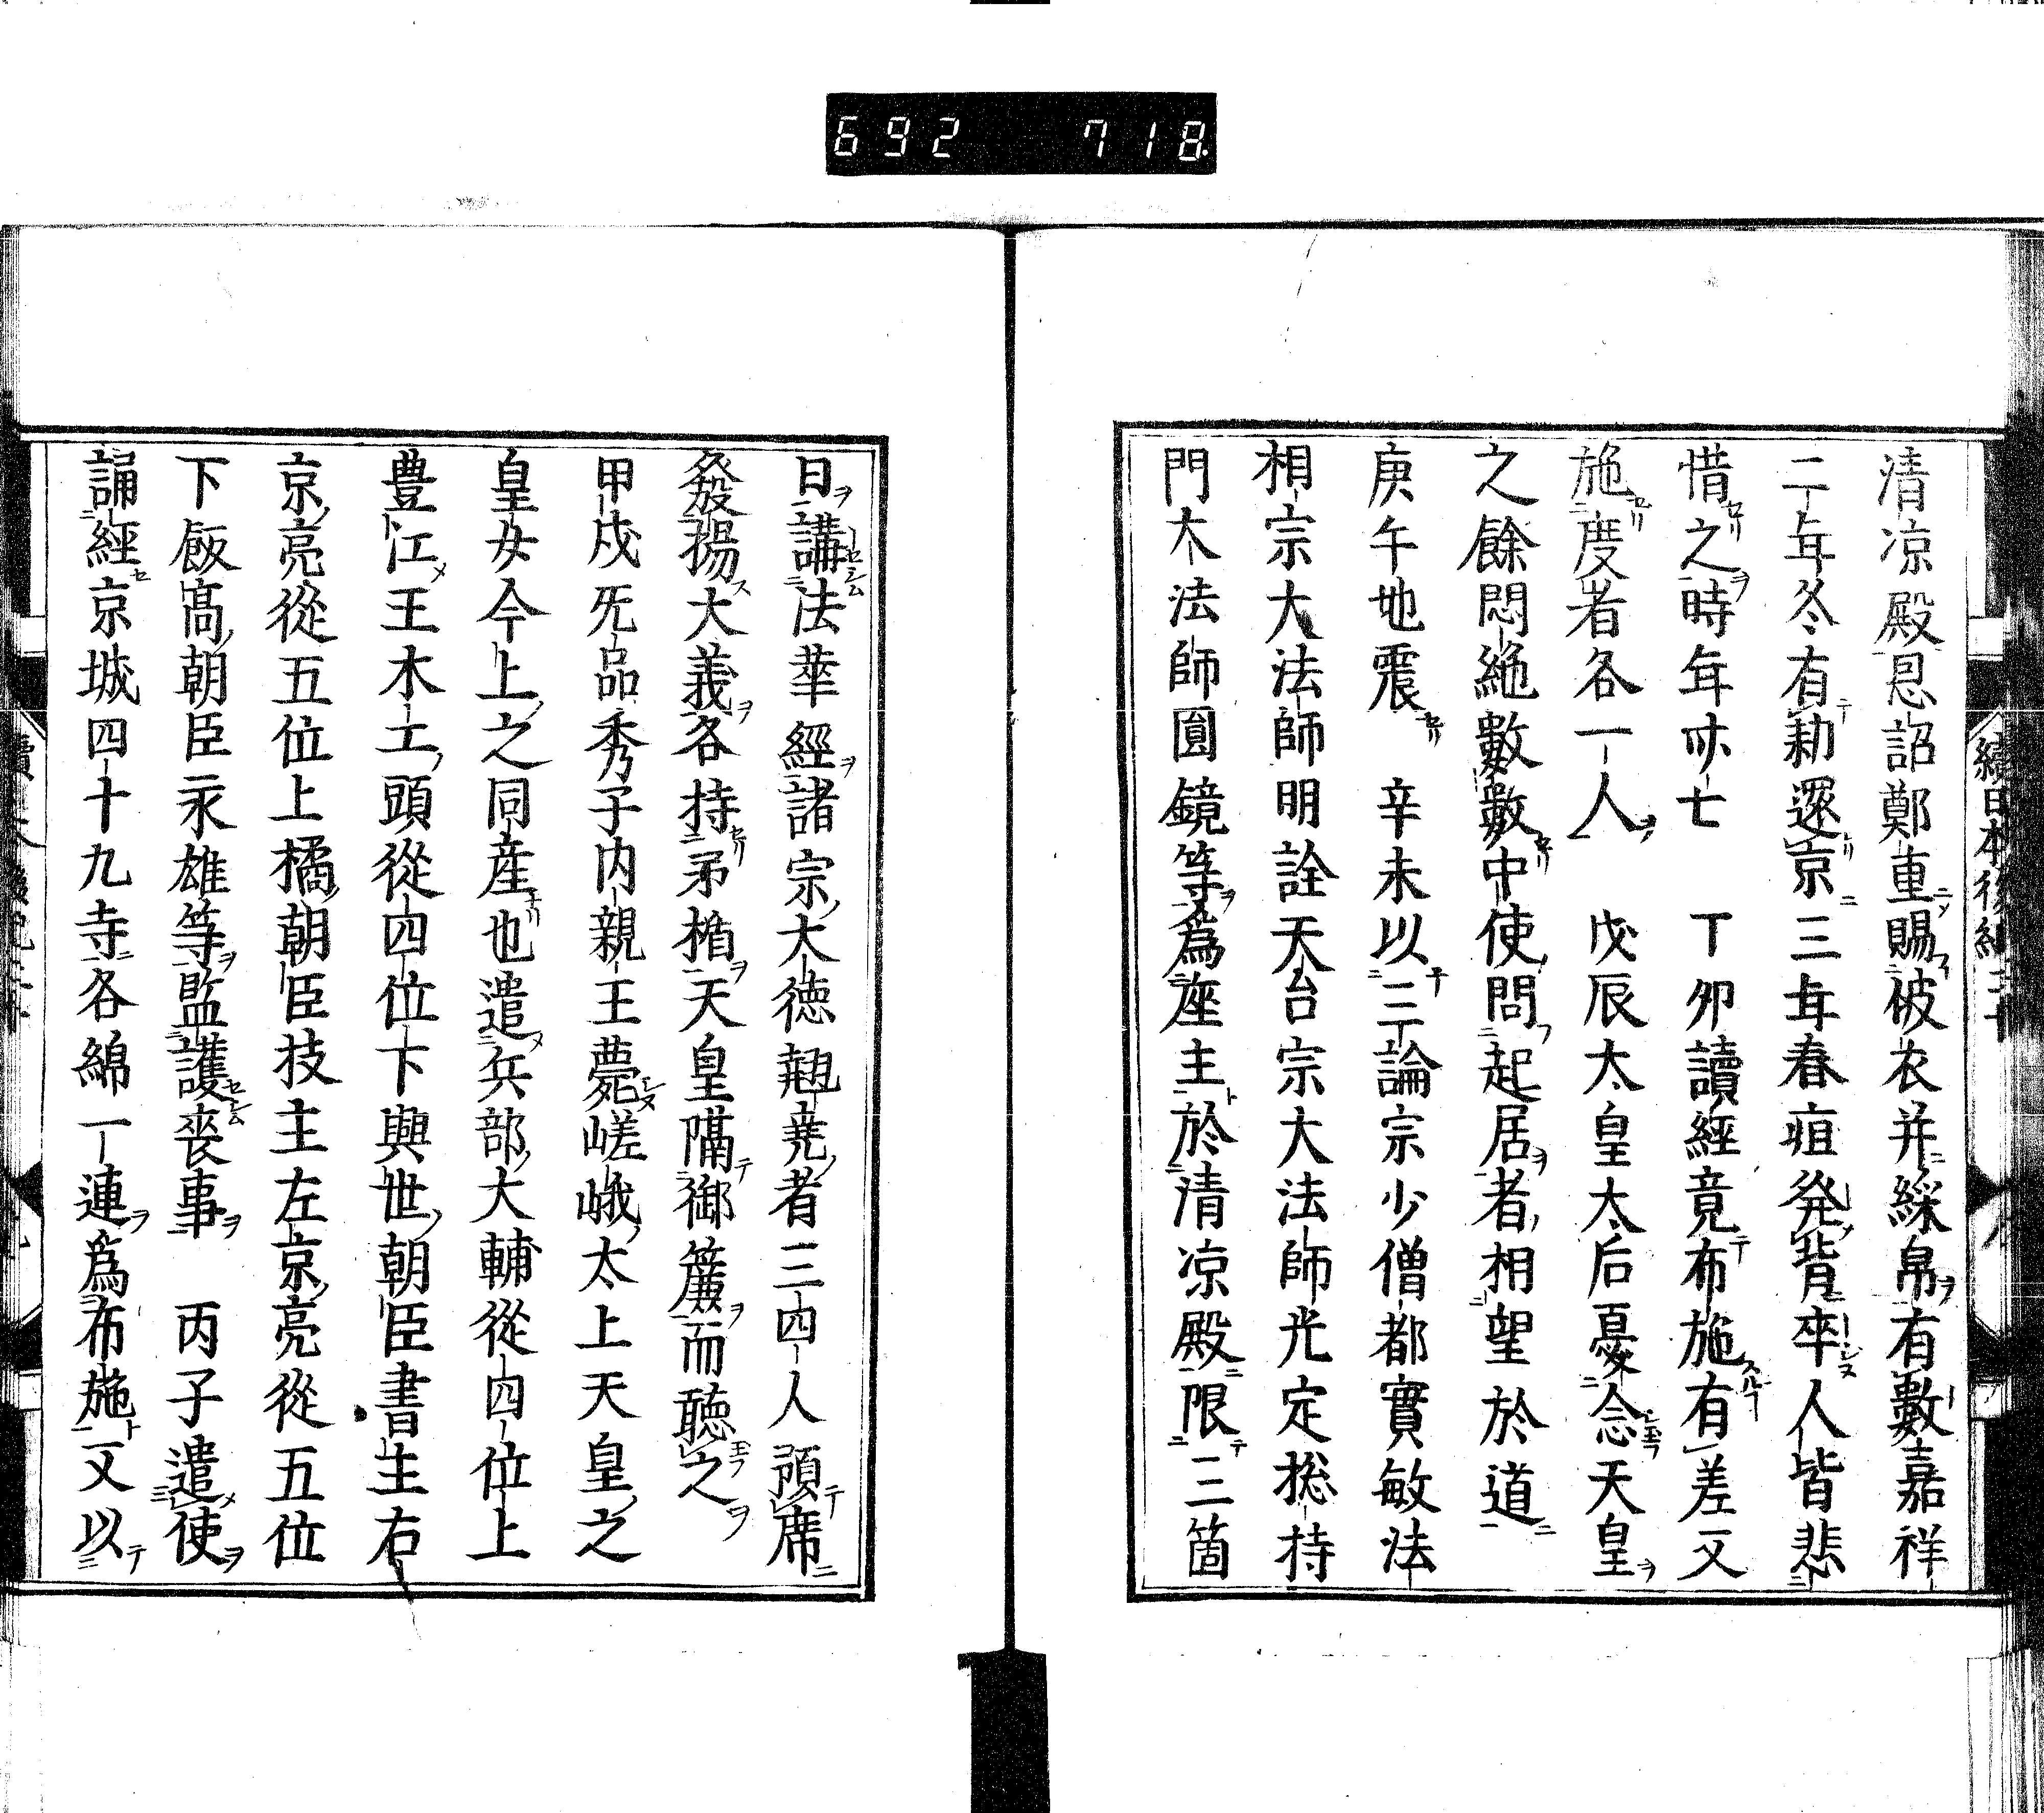 692 718.
清凉殿恩詔鄭重賜被衣并綵帛有數嘉祥
二年冬有勅還京三年春疽発背卒人皆悲
惜之時年卌七 丁卯讀經竟布施有差又
施度者各一人 戊辰太皇太后憂念天皇
之餘悶絶數數中使問起居者相望於道
庚午地震 辛未以三論宗少僧都實敏法
相宗大法師明詮天台宗大法師光定捴持
門大法師圓鏡等爲座主於清凉殿限三箇
日講法華經諸宗大徳翹堯者三四人預席
發揚大義各持矛楯天皇隔御簾而聴之
甲戌旡品秀子内親王薨嵯峨太上天皇之
皇女今上之同産也遣兵部大輔從四位上
豊江王木工頭從四位下興世朝臣書主右
京亮從五位上橘朝臣技主左京亮從五位
下飯高朝臣永雄等監護喪事 丙子遣使
誦經京城四十九寺各綿一連爲布施又以